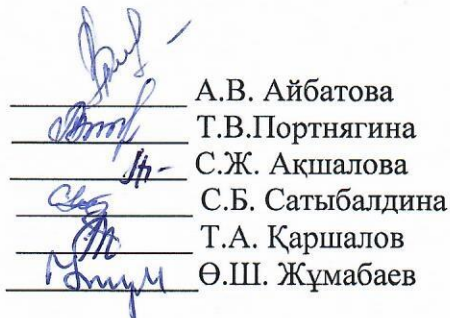 А.В. Айбатова
Т.В.Портнягина
С.Ж. Ақшалова
С.Б. Сатыбалдина
Т.А. Қаршалов
Ө.Ш. Жұмабаев